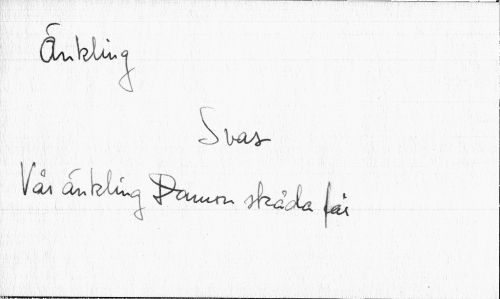 Änkling
Svas
Vår änkling Damon skåda får